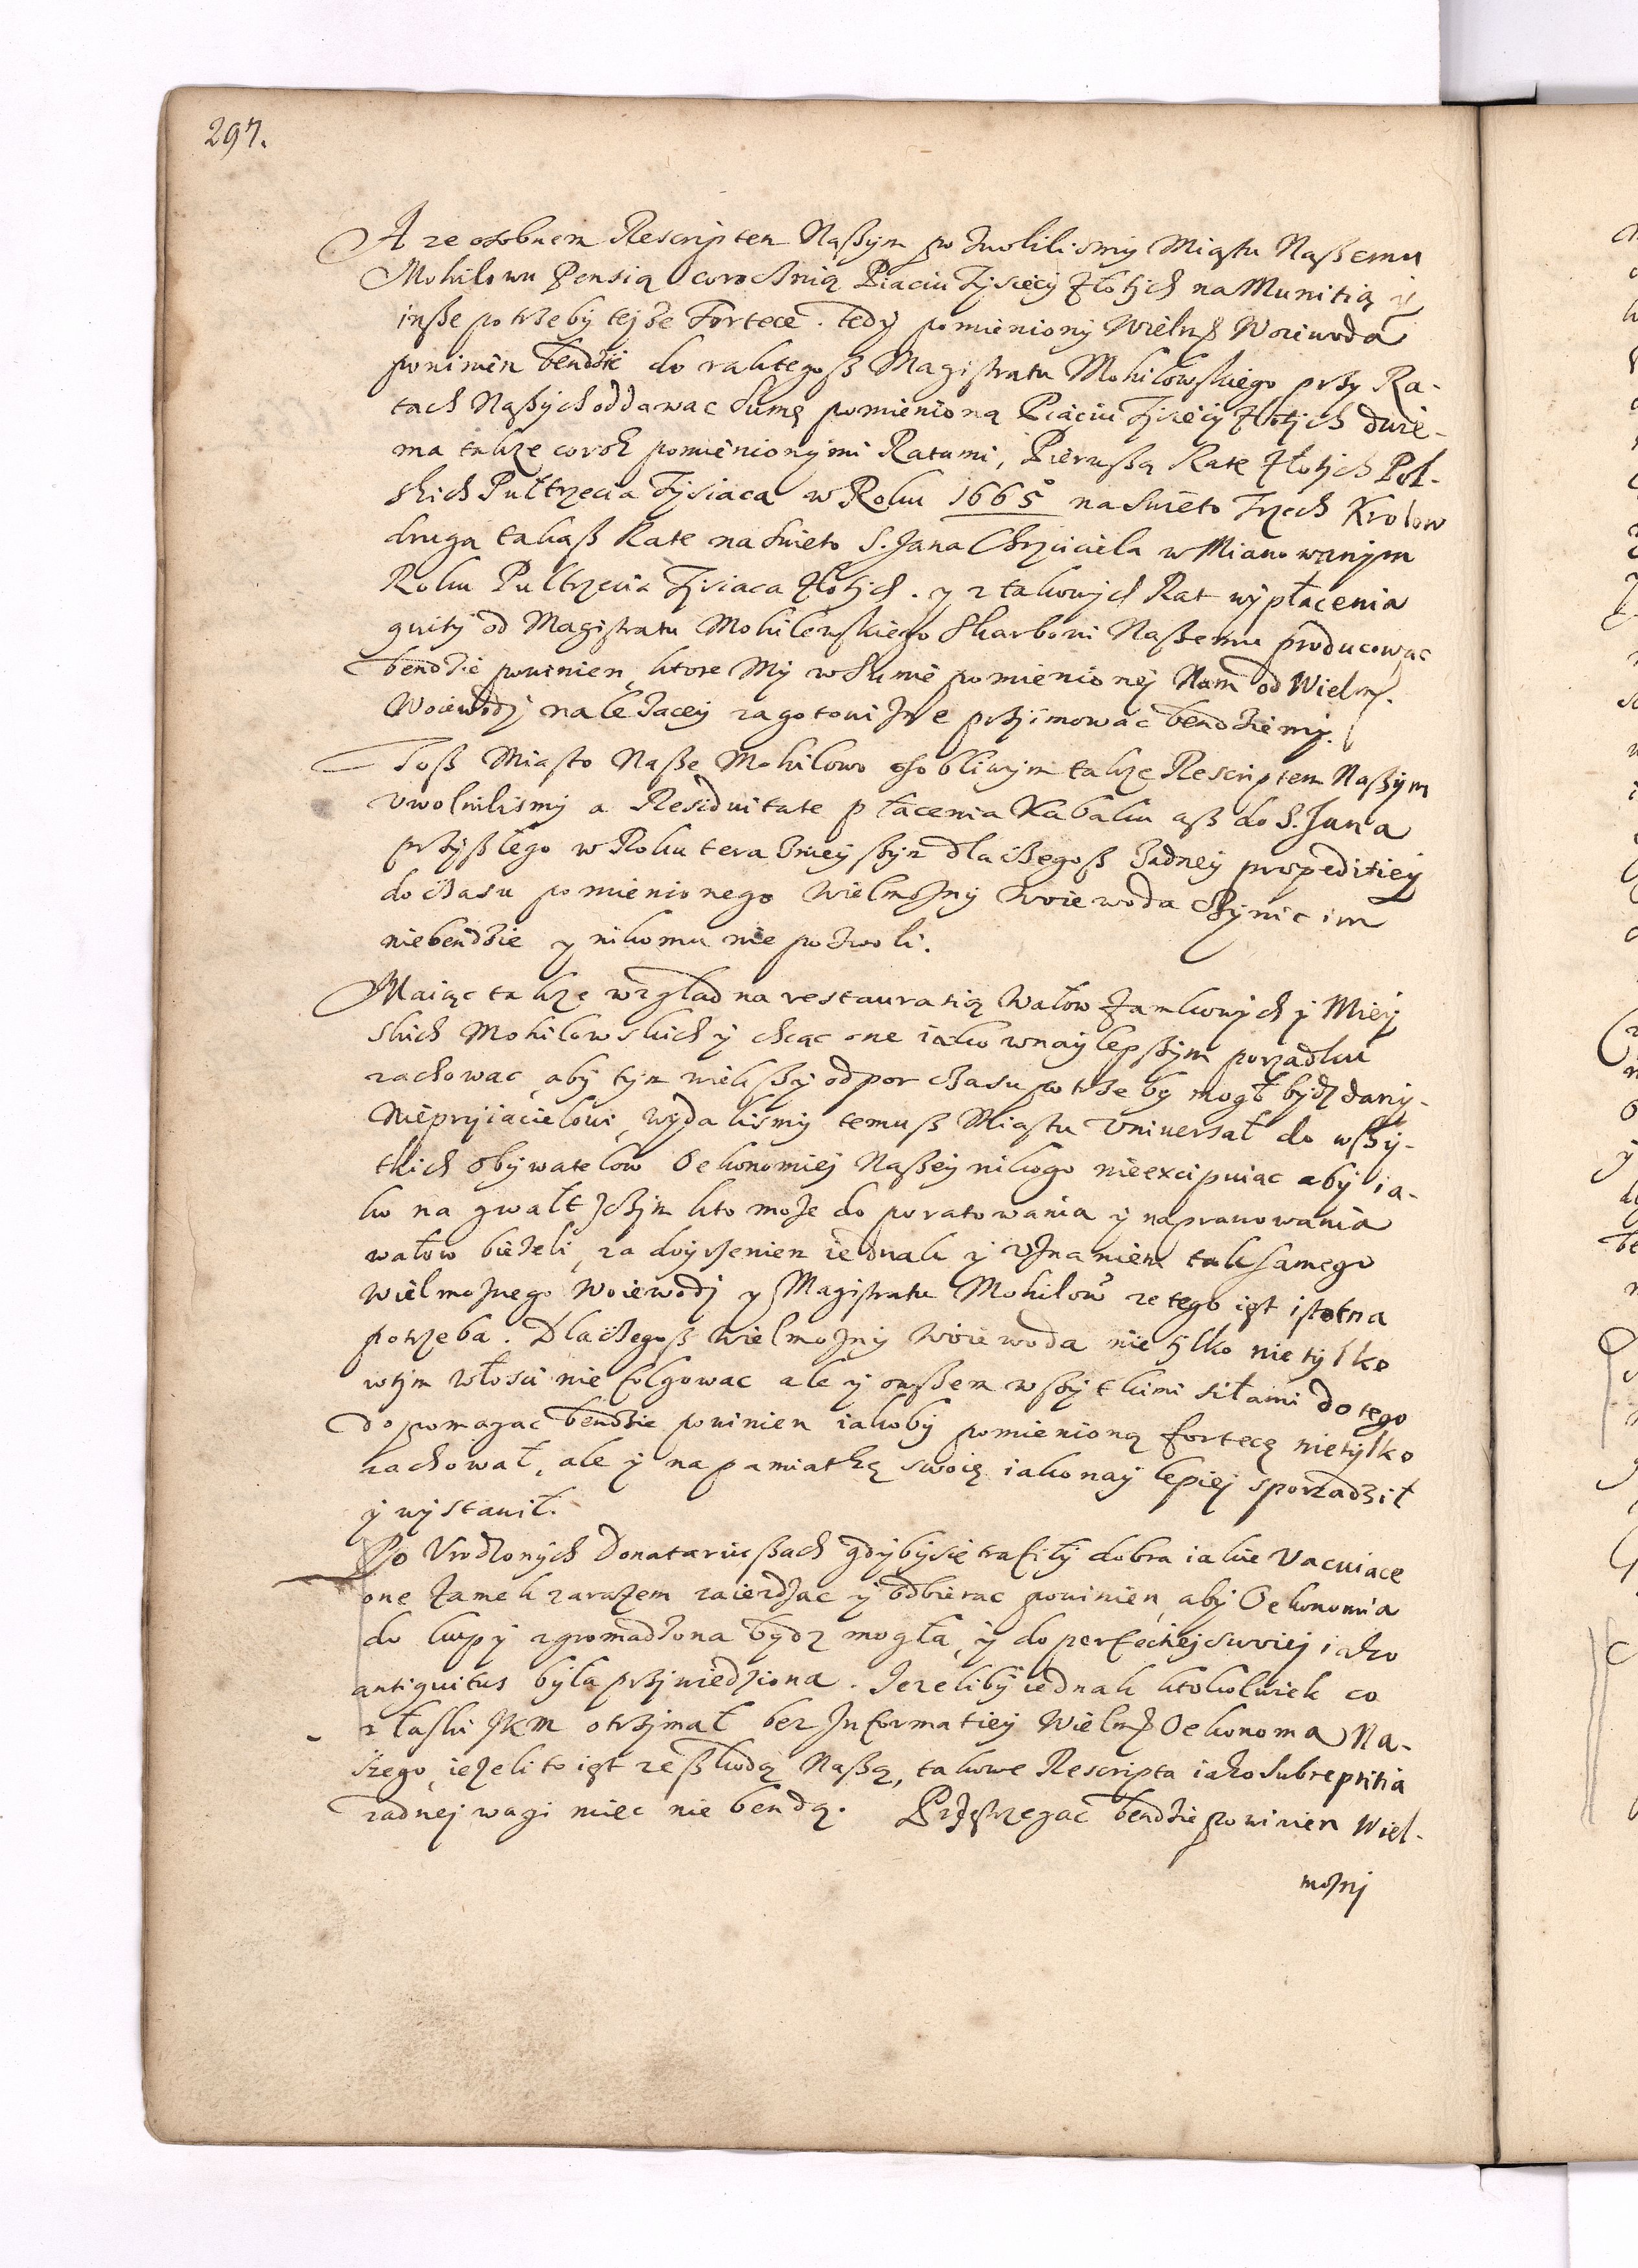 297.
A ze osobnem Rescriptem Naßym pozwolilismy Miastu Naßemu
Mohilowu Pensią corocznią Piaciu Tysiecy Złotych na Munitią y
inße potrzeby tejze Fortece. Tedy pomieniony Wielmż Woiewoda
powinien bendzie do rak tegoß Magistratu Mohilowskiego przy Ra-
tach Naßych oddawac Sumę pomienioną Piąciu Tysięcy Złotych dwie-
ma takze corok pomienionymi Ratami, Pierwßą Rate Złotych Pol-
skich Pułtrzecia Tysiaca w Roku 1665° na Swieto Trzech Krolow
drugą takąß Rate na Swieto S. Jana Chrzciciela w Mianowanym
Roku Pultrzecia Tysiaca Złotych. y z takowych Rat wypłacenia
quity od Magistratu Mohilewskiego Skarbowi Naßemu producowac
bendzie powinien, ktore My w Sumie pomienionej Nam od Wielmż.
Woiewody należacey za gotowizne przyimowac bendziemy.
Toß Miasto Naße Mohilowo osobliwym takze Rescriptem Naßym
uwolnilismy a Residuitate płacenia Kabaku aß do S. Jana
przyßłego w Roku teraznieyßym dla czegoß zadney prospeditiey
do czasu pomienionego Wielmożny Woiewoda czynic im
niebendzie y nikomu nie pozwoli.
Maiąc takze wzglad na restauratią Wałow Zamkowych y Miey
skich Mohilowskich y chcąc one iako w naylepßym porzadku
zachowac, aby tym wiekßy odpor czasu potrzeby mogł bydz dany
Nieprzyiacielowi, wydalismy temuß Miastu Uniwersał do wßy-
tkich obywatelow Oekonomiej Naßey nikogo nieexcipuiac aby ia-
ko na gwałt z czym kto może do poratowania y naprawowania
wałow bieżeli, za doyrzeniem iednak y uznaniem tak samego
Wielmożnego Woiewody y Magistratu Mohilow ze tego iest istotna
potrzeba. Dla czegoß Wielmożny Woiewoda nie tylko nie tylko
w tym włosci nie folgowac ale y owßem wßytkimi siłami do tego
dopomagac bendzie powinien iakoby pomienioną fortecę nietylko
zachował, ale y na pamiatkę swoię iako nay lepiej sporzadził
y wystawił.
Po Urodzonych Donatariußach gdyby się trafiły dobra iakie vacuiące
one Zamek zarazem zaiezdzac y odbierac powinien, aby Oekonomia
do kupy zgromadzona bydz mogła, y do perfectiej swoiej iako
antiquitus byla przywiedziona. Jezeliby iednak ktokolwiek co
z łaski JKM otrzymał bez Informatiey Wielmż Oekonoma Na-
szego, ieżeli to iest ze ßkodą Naßą, takowe Rescripta iako Subreptitia
zadnej wagi miec nie bendą. Przestrzegac bendzie powinien Wiel-
możny